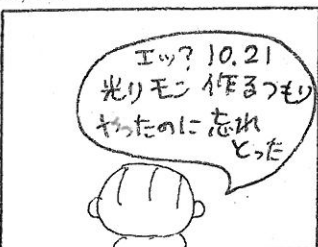 エッ? 10.21
光りモン 作るつもり
やったのに 忘れ
とった